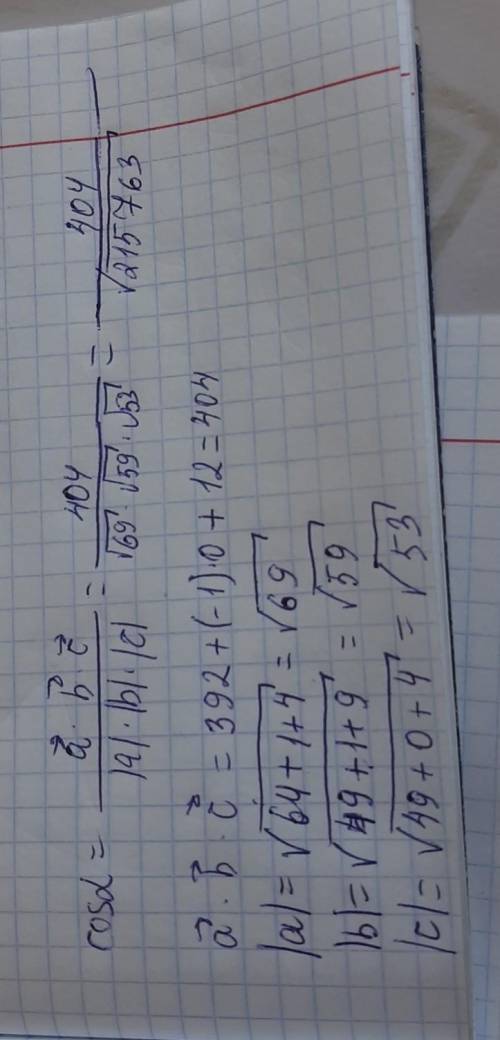 cosα = (a⃗ · b⃗ · c⃗)/(|a| · |b| · |c|) = 404/(√69 · √59 · √53) = 404/√215763
a⃗ · b⃗ · c⃗ = 392 + (-1)·0 + 12 = 404
|a| = √64+1+4 = √69
|b| = √49+1+9 = √59
|c| = √49+0+4 = √53